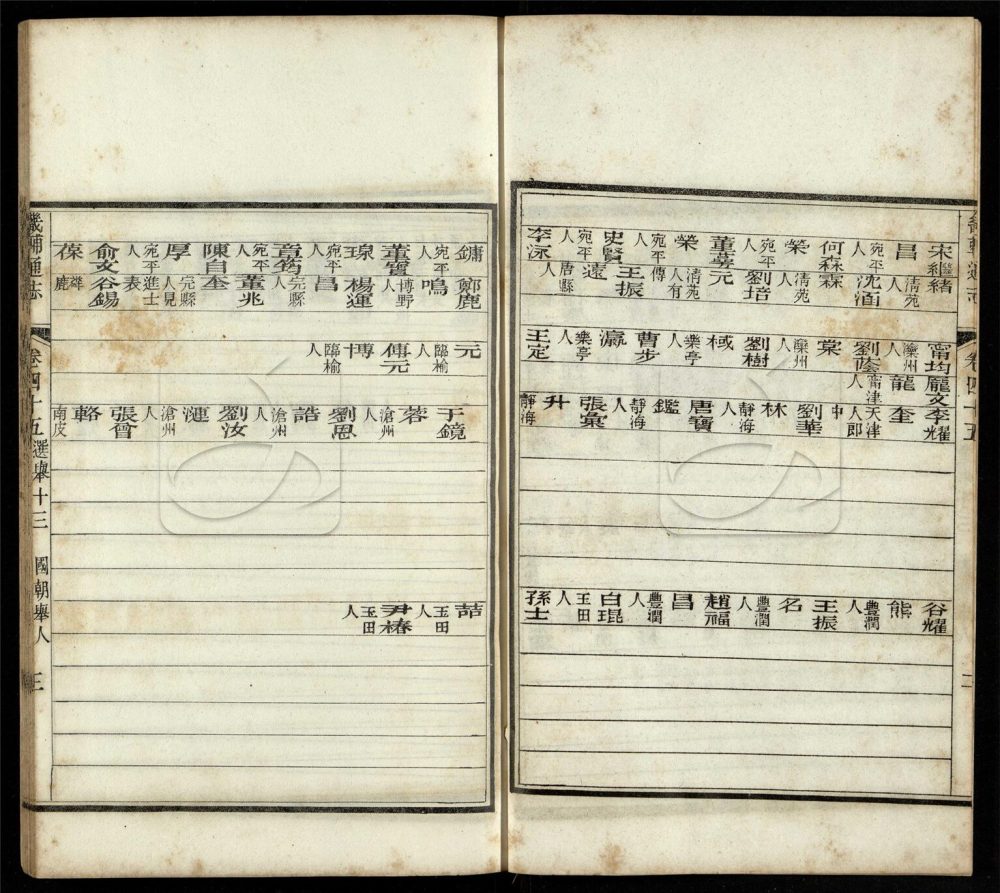 宋繼緒
昌 清苑人
宛平人 沈酒
何森霖
榮 清苑人
宛平人 劉培
董蕚元
榮 清苑人有傳
宛平人 王振
史賢遠
宛平人 唐縣人
李泳
甯均龐文李耀
灤州人 龍 奎
劉蔭 甯津人 天津人即
棠 中
灤州人 劉華
劉樹 林
棫 靜海人
樂亭人 唐寶
曹步 鑑
瀛 靜海人
樂亭人 張彙
王定 升
靜海
谷耀
熊
豐潤人
王振
名
豐潤人
趙福
昌
豐潤人
白琨
玉田人
孫士
鏞 鄭鹿
宛平人 鳴
董寶 博野人
瑔 楊運
宛平人 昌
章筠 完縣人
宛平人 董兆
陳自奎
厚 完縣人見進士表
宛平人
俞文谷錫
葆
元
臨榆人
傅元
博
臨榆人
于鏡
蓉
滄州人
劉恩
誥
滄州人
劉汝
漣
滄州人
張會
輅
南皮
喆
玉田人
尹椿
玉田人
畿輔通志
卷四十五 選舉十三 國朝舉人 三